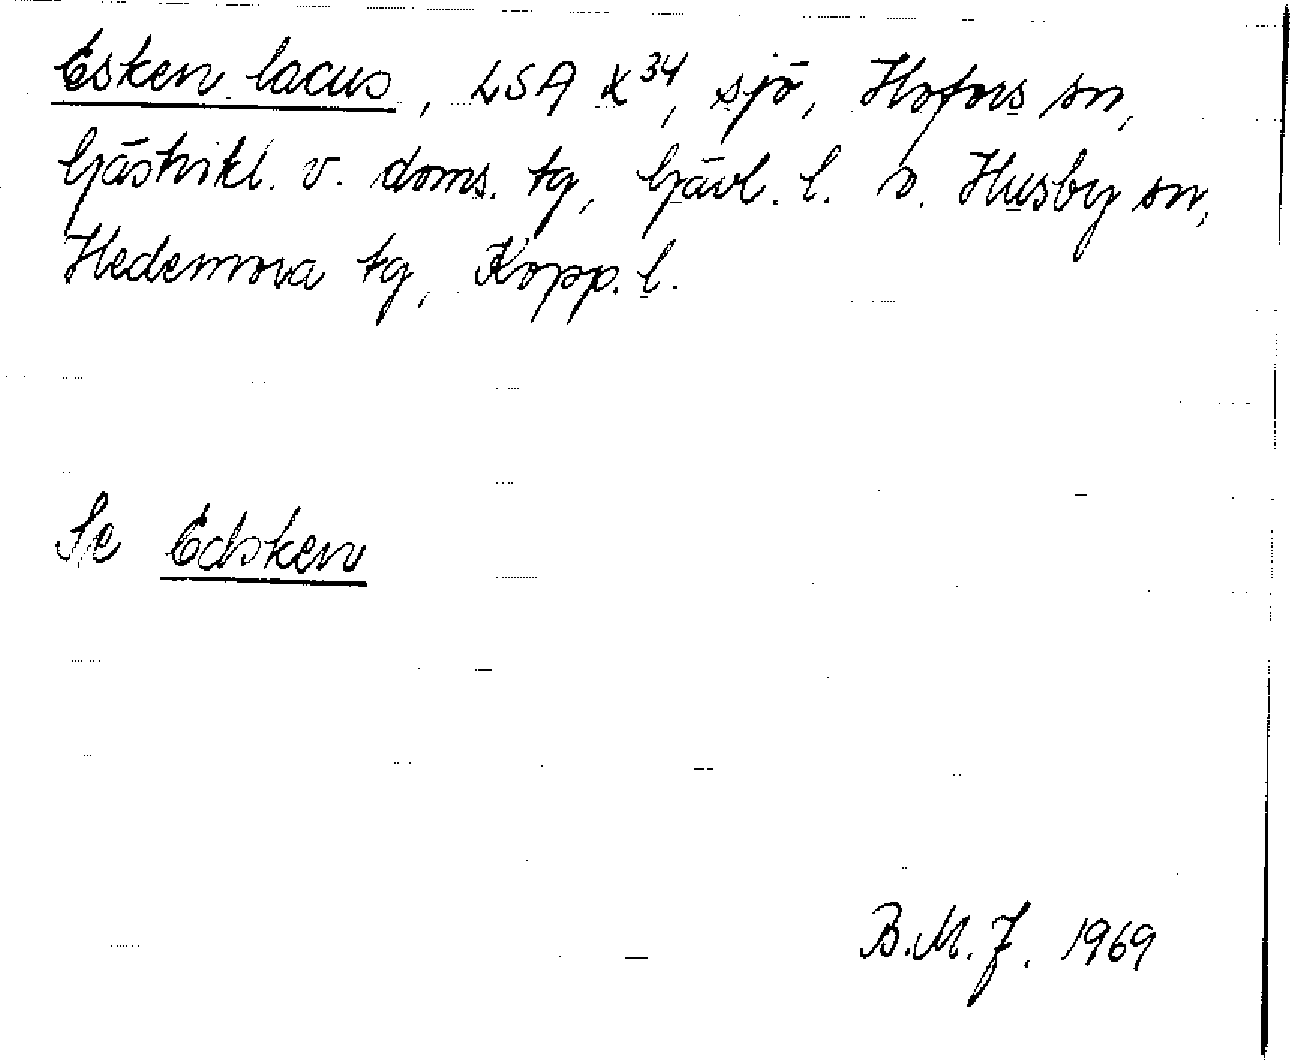 Esken lacus, LSA X34, sjö, Hofors sn,
Gästrikl. v. doms. tg, Gävl. l. o. Husby sn,
Hedemora tg, Kopp. l.
Se Edsken
B.M.J. 1969